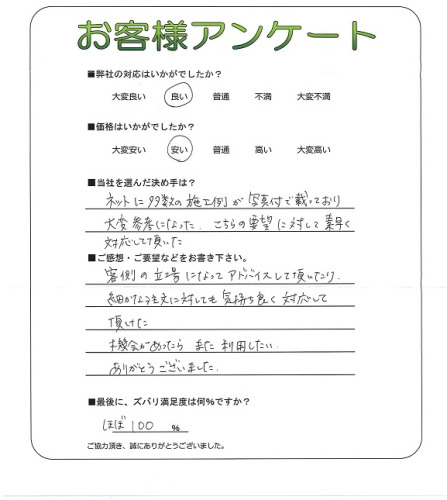 お客様アンケート
■弊社の対応はいかがでしたか？
大変良い 良い 普通 不満 大変不満
■価格はいかがでしたか？
大変安い 安い 普通 高い 大変高い
■当社を選んだ決め手は？
ネットに多数の施工例が写真付で載っており
大変参考になった。こちらの要望に対して素早く
対応して頂いた
■ご感想・ご要望などをお書き下さい。
客側の立場になってアドバイスして頂いたり、
細かな注文に対しても気持ち良く対応して
頂けた
機会があったらまた利用したい。
ありがとうございました。
■最後に、ズバリ満足度は何%ですか？
ほぼ100 %
ご協力頂き、誠にありがとうございました。